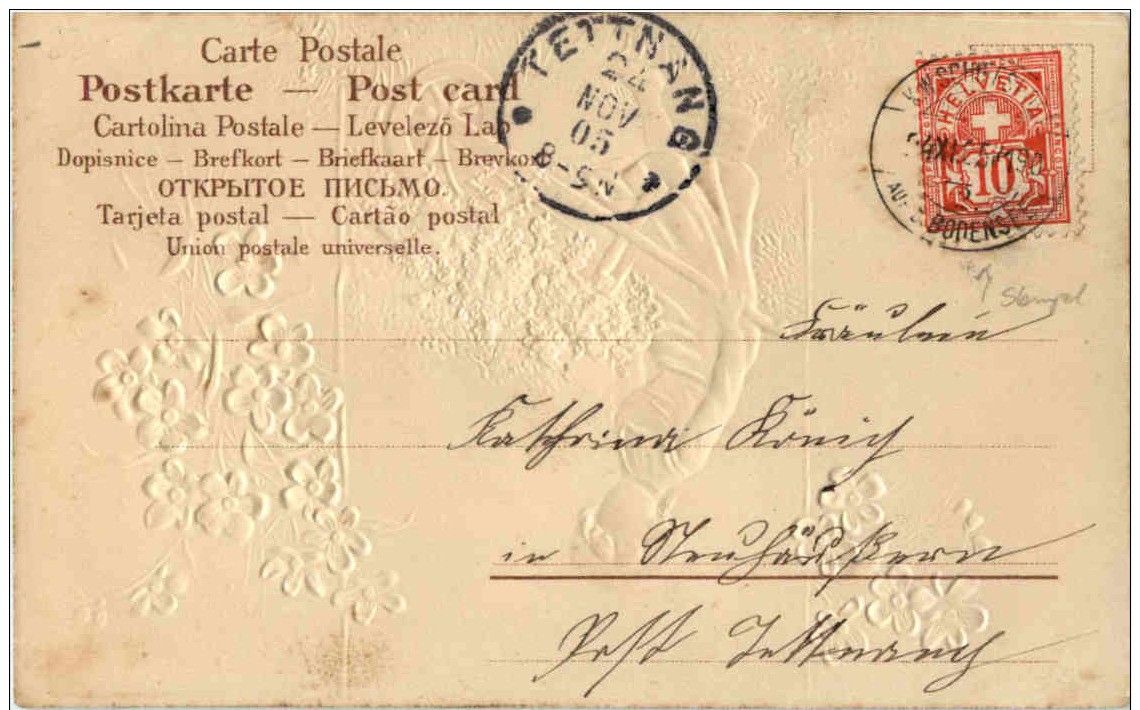 Carte Postale
Postkarte — Post card
Cartolina Postale — Levelező Lap
Dopisnice — Brefkort — Briefkaart — Brevkort
ОТКРЫТОЕ ПИСЬМО.
Tarjeta postal — Cartão postal
Union postale universelle.
TETTNANG
24
NOV
05
8-9N
HELVETIA
10
BODENSEE
Stempel
Fräulein
Kathrina König
in Neuhäußern
Post Tettnang